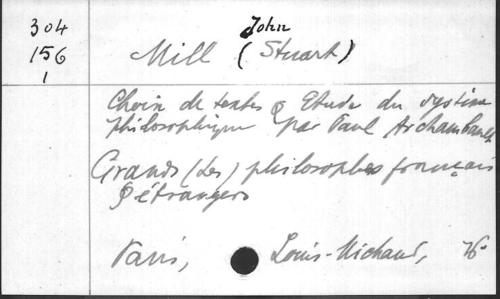 304
John
156
Mill (Stuart)
1
Choix de textes & Etude du système
philosophique par Paul Archambault
Grands (Les) philosophes français
& étrangers
Paris, Louis-Michaud,